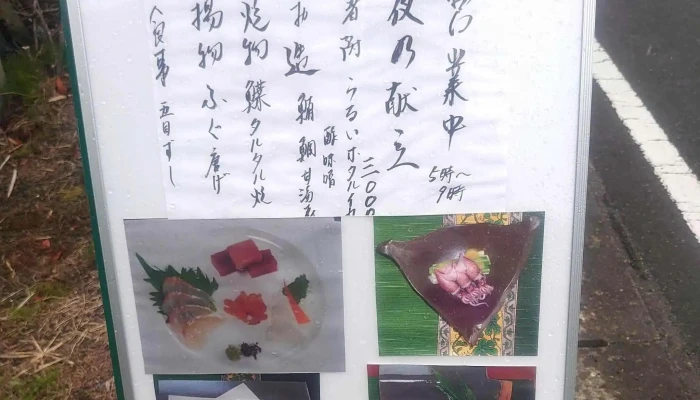 営業中
5時〜
9時
夜の献立
三〇〇〇
肴附 うるいホタルイカ
酢味噌
造 鮪 鯛 甘海老
焼物 鰈タルタル焼
揚物 ふぐ唐げ
食事 五目すし